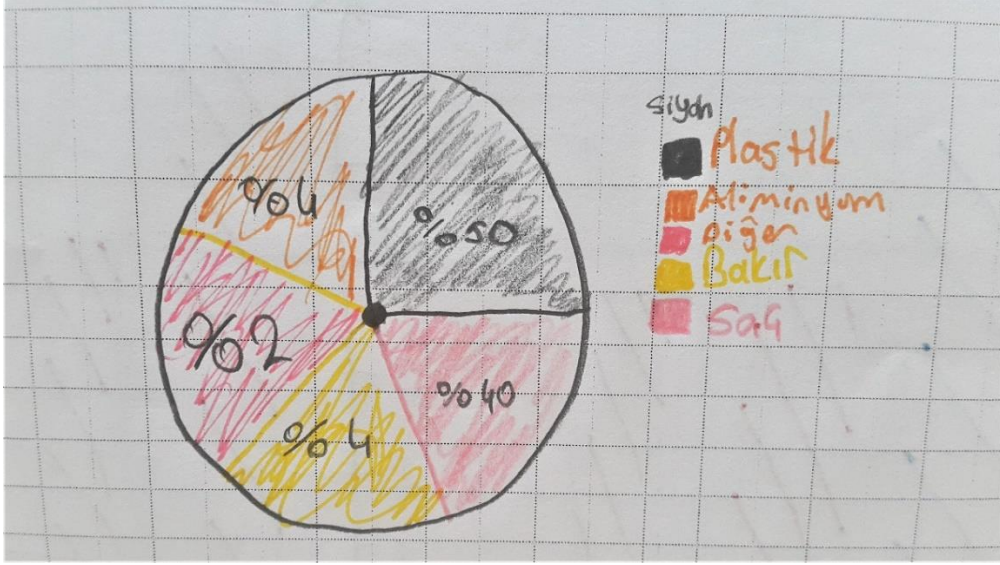 %4
%50
%2
%40
%4
Siyah
Plastik
Aliminyum
Diğer
Bakır
Saç